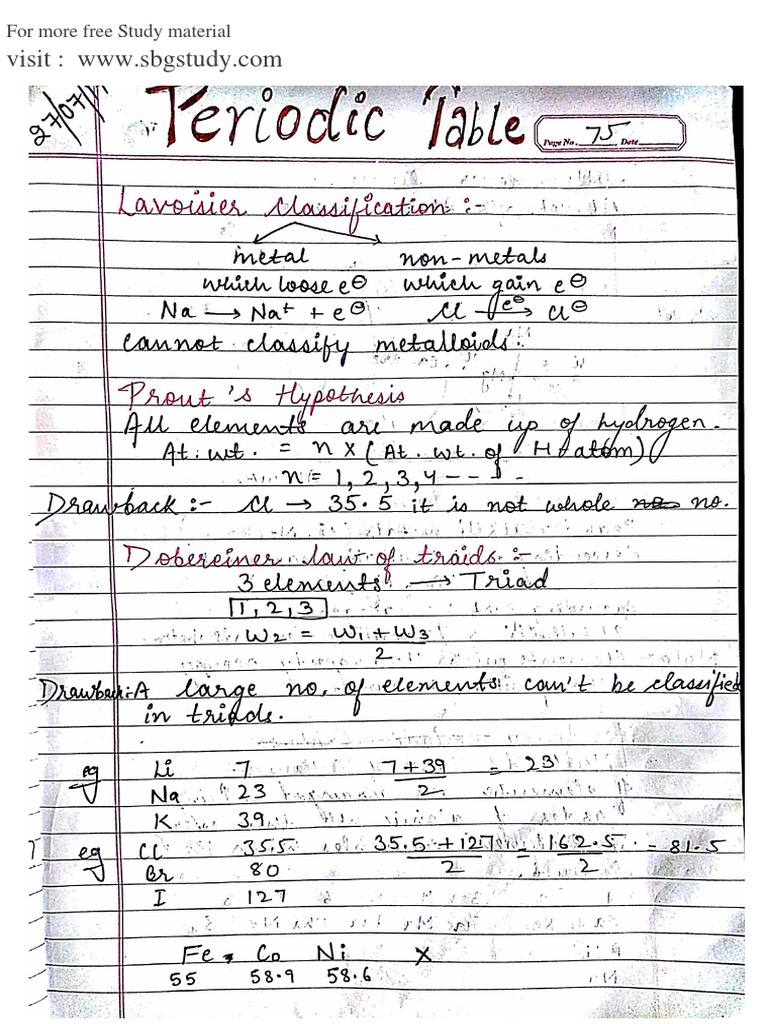 For more free Study material
visit : www.sbgstudy.com
27/07/
Periodic Table
Page No. 75 Date
Lavoisier Classification :-
metal non-metals
which loose e⊖ which gain e⊖
Na → Na⁺ + e⊖ Cl —e⊖→ Cl⊖
cannot classify metalloids.
Prout's Hypothesis
All elements are made up of hydrogen.
At. wt. = n x (At. wt. of H atom)
n = 1, 2, 3, 4 - - -
Drawback :- Cl → 35.5 it is not whole no.
Dobereiner law of traids :-
3 elements → Triad
1, 2, 3
W2 = W1 + W3
2
Drawback:- A large no. of elements can't be classified
in triads.
eg Li 7 7+39 = 23
Na 23 2
K 39
eg Cl 35.5 35.5 + 127 = 162.5 - 81.5
Br 80 2 2
I 127
Fe, Co Ni X
55 58.9 58.6